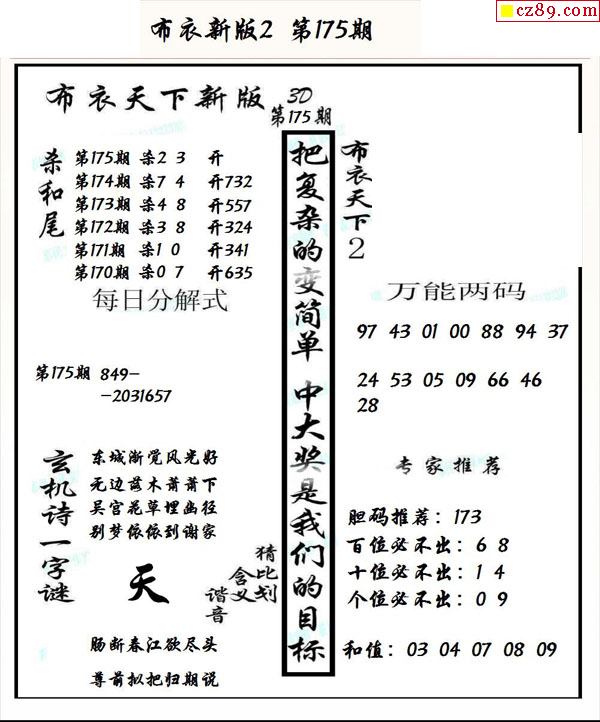 cz89.com
布衣新版2 第175期
布衣天下新版
3D
第175期
杀和尾
第175期 杀2 3 开
第174期 杀7 4 开732
第173期 杀4 8 开557
第172期 杀3 8 开324
第171期 杀1 0 开341
第170期 杀0 7 开635
每日分解式
第175期 849-
-2031657
玄机诗一字谜
东城渐觉风光好
无边落木萧萧下
吴宫花草埋幽径
别梦依依到谢家
天
猜比划
含义
谐音
肠断春江欲尽头
尊前拟把归期说
把复杂的变简单 中大奖是我们的目标
布衣天下2
万能两码
97 43 01 00 88 94 37
24 53 05 09 66 46
28
专家推荐
胆码推荐：173
百位必不出：6 8
十位必不出：1 4
个位必不出：0 9
和值：03 04 07 08 09